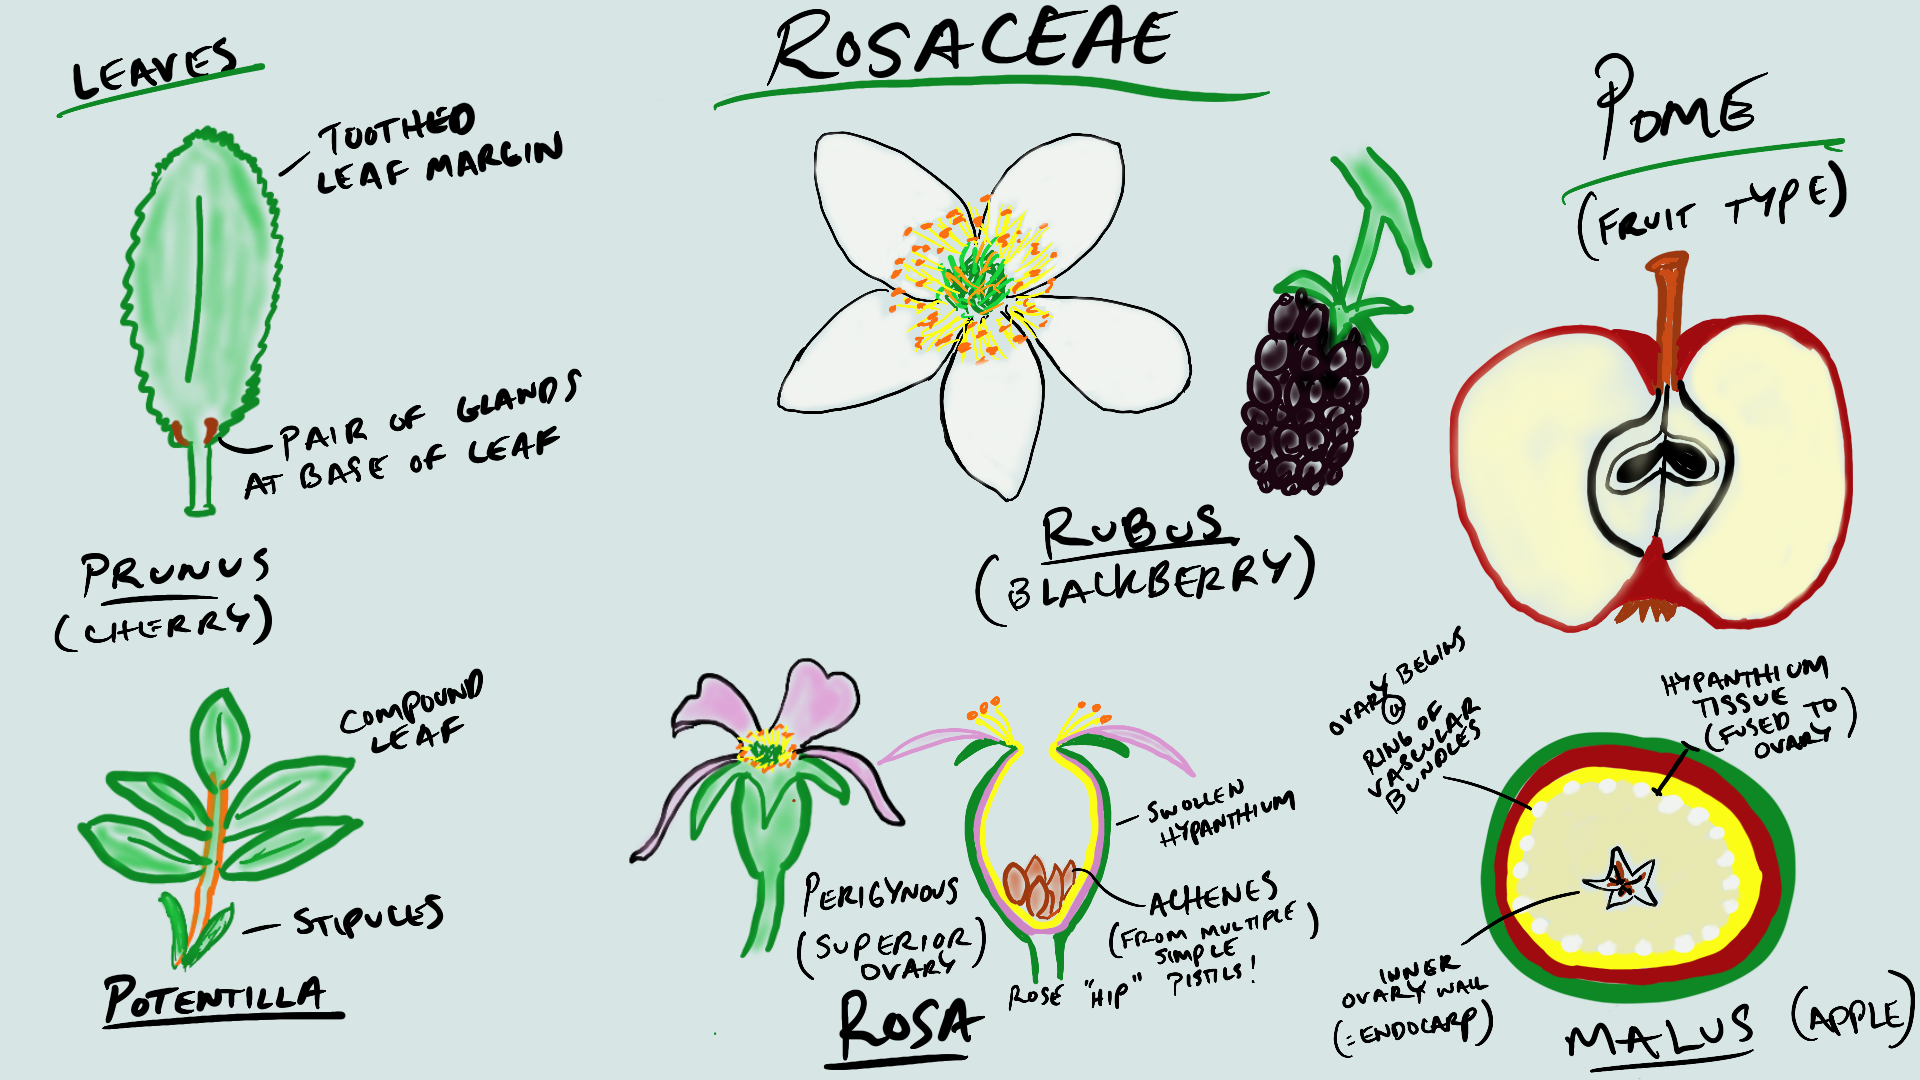 ROSACEAE
LEAVES
TOOTHED
LEAF MARGIN
PAIR OF GLANDS
AT BASE OF LEAF
PRUNUS
(CHERRY)
COMPOUND
LEAF
STIPULES
POTENTILLA
RUBUS
(BLACKBERRY)
PERIGYNOUS
(SUPERIOR
OVARY)
SWOLLEN
HYPANTHIUM
ACHENES
(FROM MULTIPLE
SIMPLE
PISTILS!)
ROSE "HIP"
ROSA
POME
(FRUIT TYPE)
OVARY BEGINS
@
RING OF
VASCULAR
BUNDLES
HYPANTHIUM
TISSUE
(FUSED TO
OVARY)
INNER
OVARY WALL
(=ENDOCARP)
MALUS (APPLE)